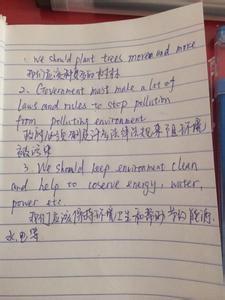 1. we should plant trees more and more
我们应该种更多的树木
2. Government must make a lot of
laws and rules to stop pollution
from polluting environment
政府必须制定许多法律法规来阻环境
被污染
3. We should keep environment clean
and help to coserve energy, water,
power etc.
我们应该保持环境卫生和帮助节约能源,
水,电等